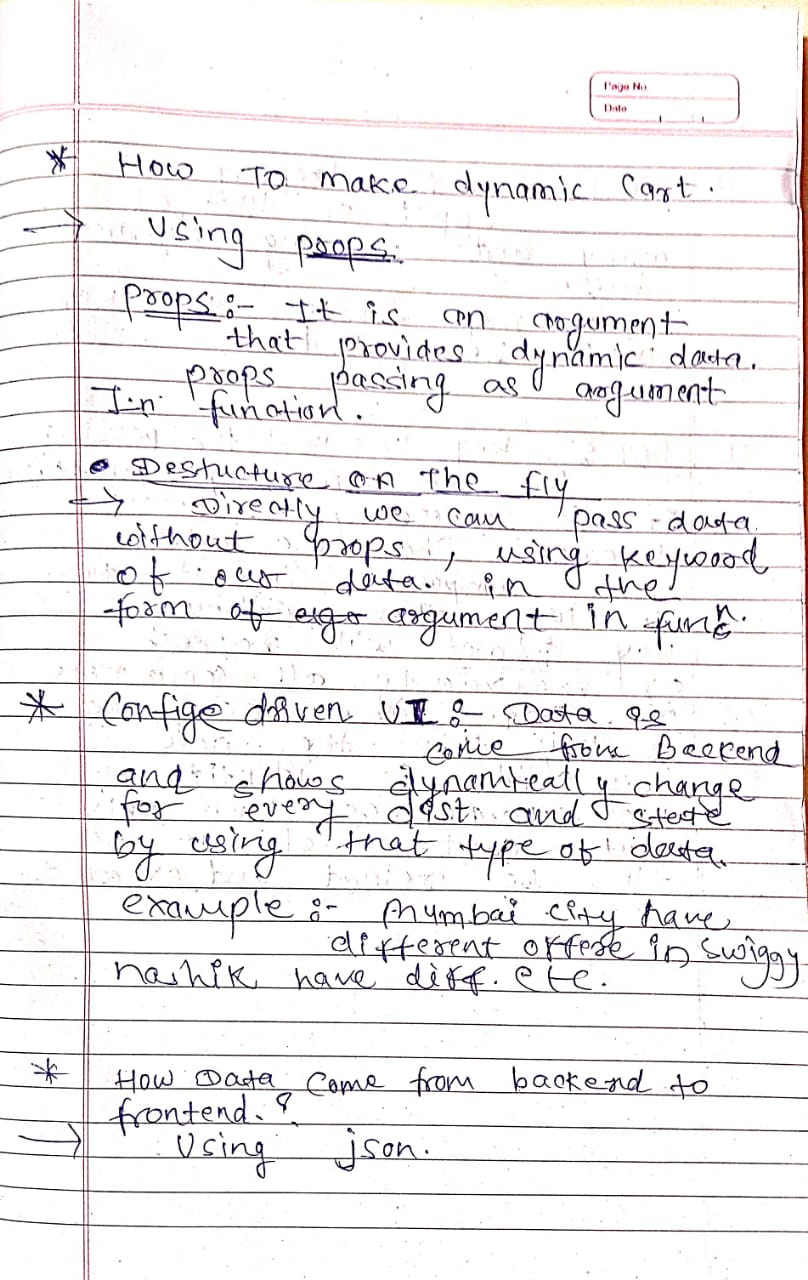 Page No.
Date
* How To make dynamic Cart.
→ Using props.
Props :- It is an argument
that provides dynamic data.
props passing as argument
In function.
• Destucture on The fly
→ Directly we can pass data
without props, using keyword
of our data. in the
form of argument in func^n.
* Config driven UI :- Data
come from Backend
and shows dynamically change
for every dist. and state
by using that type of data.
example :- Mumbai city have
different offers in swiggy
nashik have diff. etc.
* How Data Come from backend to
frontend.?
→ Using json.